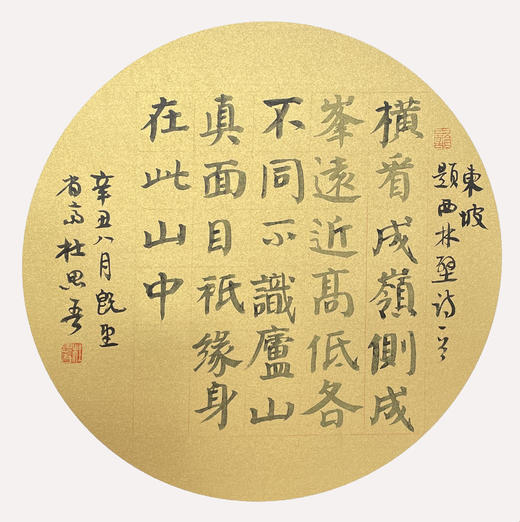 東坡
題西林壁詩一首
橫看成嶺側成
峯遠近高低各
不同不識廬山
真面目祇緣身
在此山中
辛丑八月既望
杜思吾